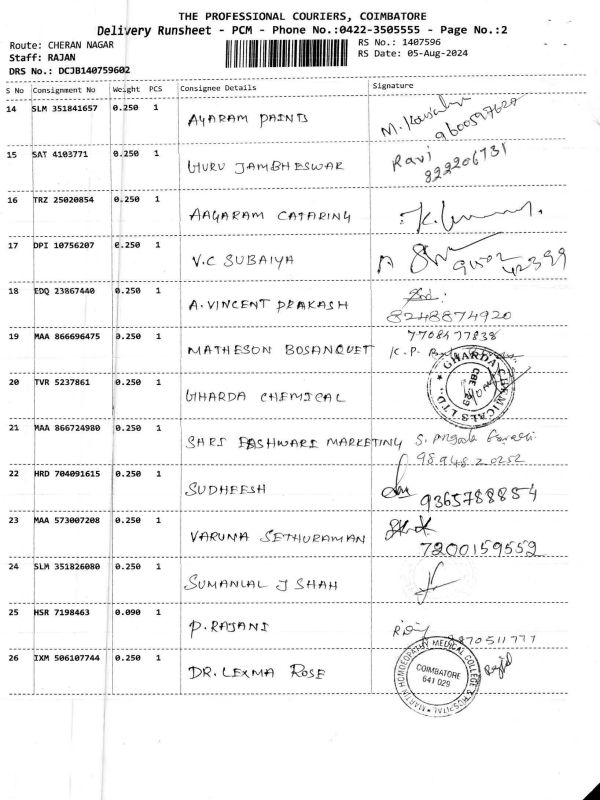 THE PROFESSIONAL COURIERS, COIMBATORE
Delivery Runsheet - PCM - Phone No.:0422-3505555 - Page No.:2
Route: CHERAN NAGAR RS No.: 1407596
Staff: RAJAN RS Date: 05-Aug-2024
DRS No.: DCJB140759602
S No Consignment No Weight PCS Consignee Details Signature
14 SLM 351841657 0.250 1 AYARAM PAINTS M.
9600597620
15 SAT 4103771 0.250 1 GURU JAMBHESWAR Ravi
822206731
16 TRZ 25020854 0.250 1 AAGARAM CATARING
17 DPI 10756207 0.250 1 V.C SUBAIYA
18 EDQ 23867440 0.250 1 A.VINCENT PRAKASH
8248874920
19 MAA 866696475 0.250 1 MATHESON BOSANQUET 7708477838
K.P.
20 TVR 5237861 0.250 1 GHARDA CHEMICAL GHARDA CHEMICALS LTD.,
CBE
21 MAA 866724980 0.250 1 SHRI EASHWARI MARKETING S.
98948 20252
22 HRD 704091615 0.250 1 SUDHEESH
9365788854
23 MAA 573007208 0.250 1 VARUNA SETHURAMAN
7200159552
24 SLM 351826080 0.250 1 SUMANLAL J SHAH
25 HSR 7198463 0.090 1 P.RAJANI
70511777
26 IXM 506107744 0.250 1 DR.LEXMA ROSE MARTIN HOMOEOPATHY MEDICAL COLLEGE & HOSPITAL
COIMBATORE
641 029